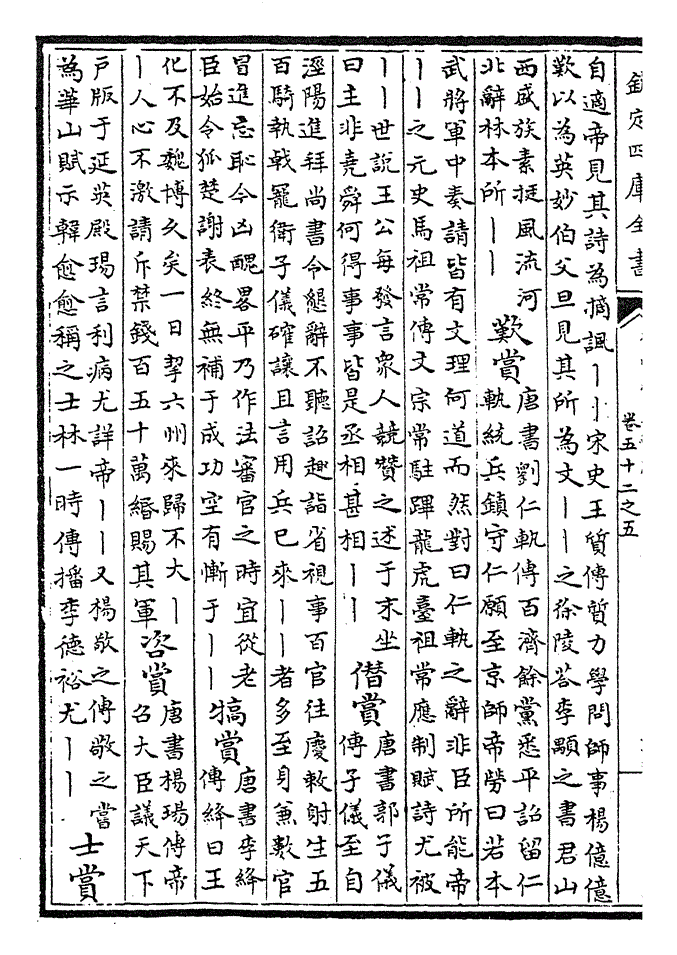 欽定四庫全書
卷五十二之五
自適帝見其詩為摘諷丨丨宋史王質傳質力學問師事楊億億
歎以為英妙伯父旦見其所為文丨丨之徐陵荅李顒之書君山
西戚族素挺風流河
北辭林本所丨丨
歎賞
唐書劉仁軌傳百濟餘黨悉平詔留仁
軌統兵鎮守仁願至京師帝勞曰若本
武將軍中奏請皆有文理何道而然對曰仁軌之辭非臣所能帝
丨丨之元史馬祖常傳文宗常駐蹕龍虎臺祖常應制賦詩尤被
丨丨世說王公每發言衆人競贊之述于末坐
曰主非堯舜何得事事皆是丞相甚相丨丨
僭賞
唐書郭子儀
傳子儀至自
涇陽進拜尚書令懇辭不聽詔趣詣省視事百官往慶敕射生五
百騎執戟寵衛子儀確讓且言用兵已來丨丨者多至身兼數官
冒進忘恥今凶醜畧平乃作法審官之時宜從老
臣始令狐楚謝表終無補于成功空有慚于丨丨
犒賞
唐書李絳
傳絳曰王
化不及魏博久矣一日挈六州來歸不大丨
丨人心不激請斥禁錢百五十萬緡賜其軍
咨賞
唐書楊瑒傳帝
召大臣議天下
戶版于延英殿瑒言利病尤詳帝丨丨又楊敬之傳敬之嘗
為華山賦示韓愈愈稱之士林一時傳播李德裕尤丨丨
士賞